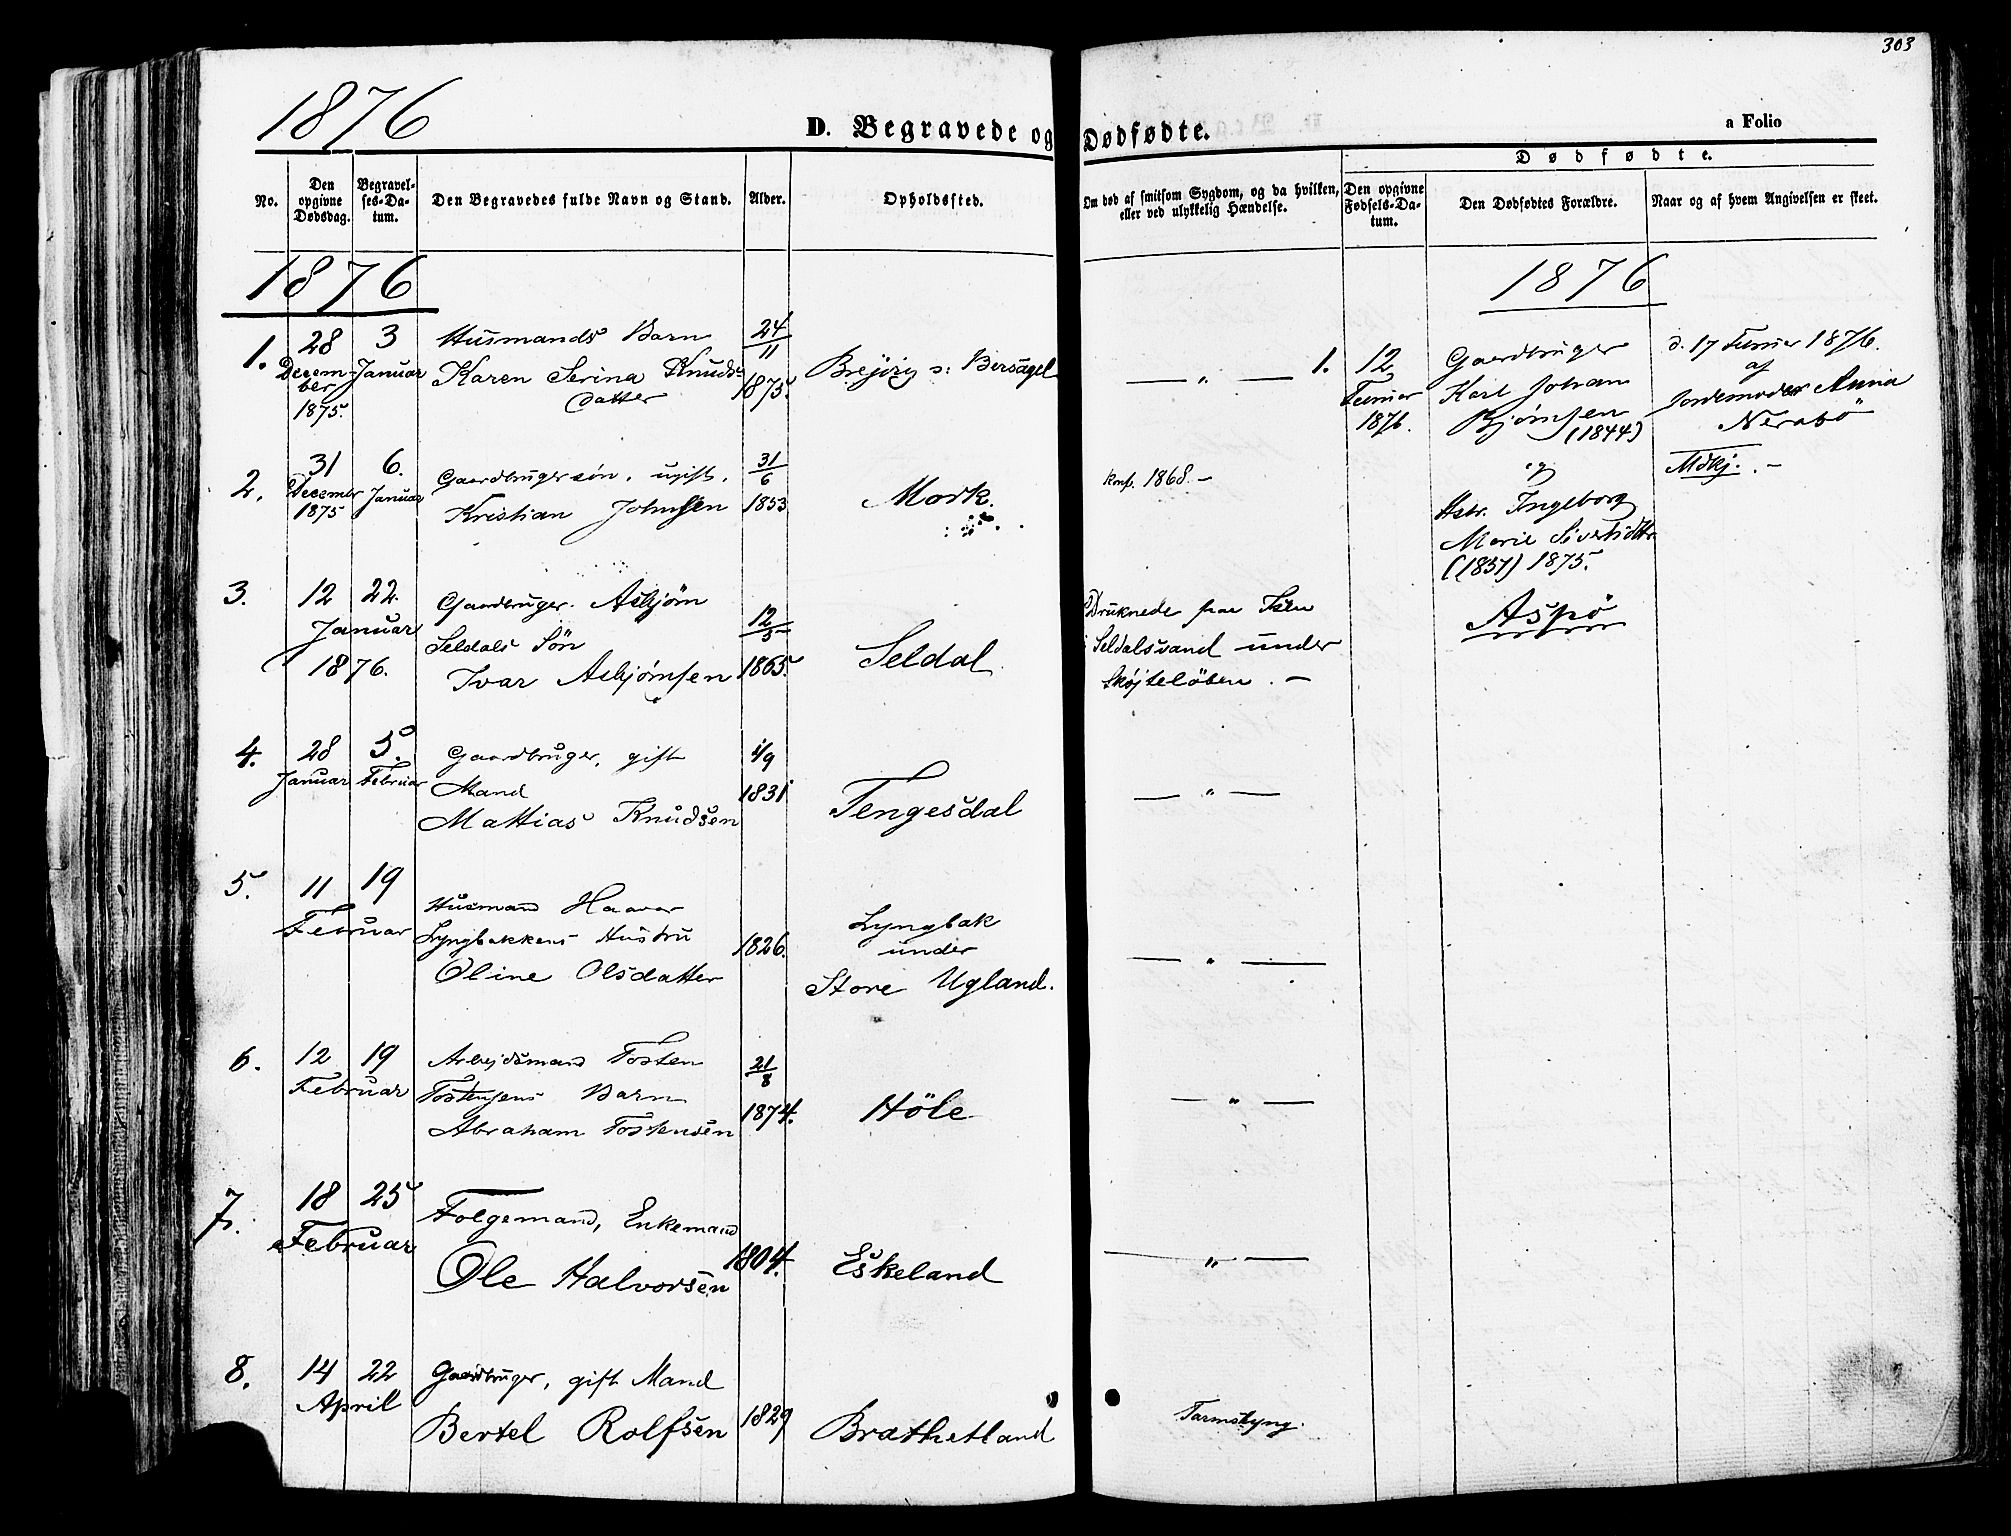 303
1876
D. Begravede og Dødfødte.
a Folio
No.
Den opgivne Dødsdag.
Begravelses-Datum.
Den Begravedes fulde Navn og Stand.
Alder.
Opholdssted.
Om død af smitsom Sygdom, og da hvilken,
eller ved ulykkelig Hændelse.
Dødfødte.
Den opgivne Fødsels-Datum.
Den Dødfødtes Forældre.
Naar og af hvem Angivelsen er skeet.
1876
1876
1. 28 3 Husmands Barn 24/11
December Januar Karen Serina Knuds-
datter 1875. Bersagel
1875.
— " —
2. 31 6. Gaardbrugersøn, ugift. 31/6
December 1875 Januar Kristian Johnsen 1853 Mork.
Konf. 1868. —
3. 12 22. Gaardbruger Asbjørn
Januar Seldals Sön 12/5
1876. Ivar Asbjørnsen 1865. Seldal
Druknede paa Isen
i Seldalsvand under
Skøjteløben. —
4. 28 5. Gaardbruger, gift 1/9
Januar Februar Mand 1831
Mattias Knudsen Tengesdal
— " —
5. 11 19 Husmand Haavar
Februar Lyngbakkens Hustru 1826.
Oline Olsdatter
Lyngbak
under
Store Ugland.
— " —
6. 12 19 Arbejdsmand Tosten 21/8
Februar Tostensens Barn 1874.
Abraham Tostensen Höle
— " —
7. 18 25 Folgemand, Enkemand
Februar Ole Halvorsen 1804. Eskeland
— " —
8. 14 22 Gaardbruger, gift Mand
April Bertel Rolfsen 1829 Brathetland
Tarmslyng.
1. 12
1876.
Gaardbruger
Karl Johan
Bjørnsen
(1844)
og
Hstr. Ingeborg
Marie Sivertsdttr
(1851) 1875.
Aspö
d. 17 1876.
af
Jordemoder Anna
Nerabö